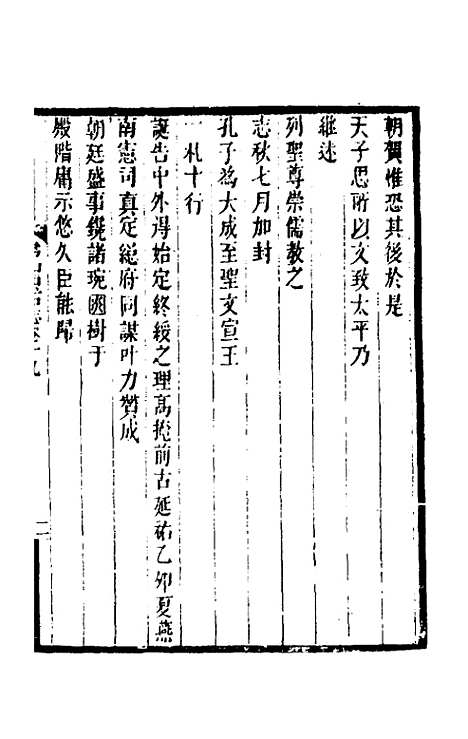 朝賀惟恐其後於是
天子思所以文致太平乃
繼述
列聖尊崇儒教之
志秋七月加封
孔子爲大成至聖文宣王
一札十行
誕告中外得始定終綏之理高掩前古延祐乙卯夏燕
南憲司真定總府同謀叶力贊成
朝廷盛事鐫諸琬國樹于
殿階廟示悠久臣能歸
常山貞石志卷十九
二